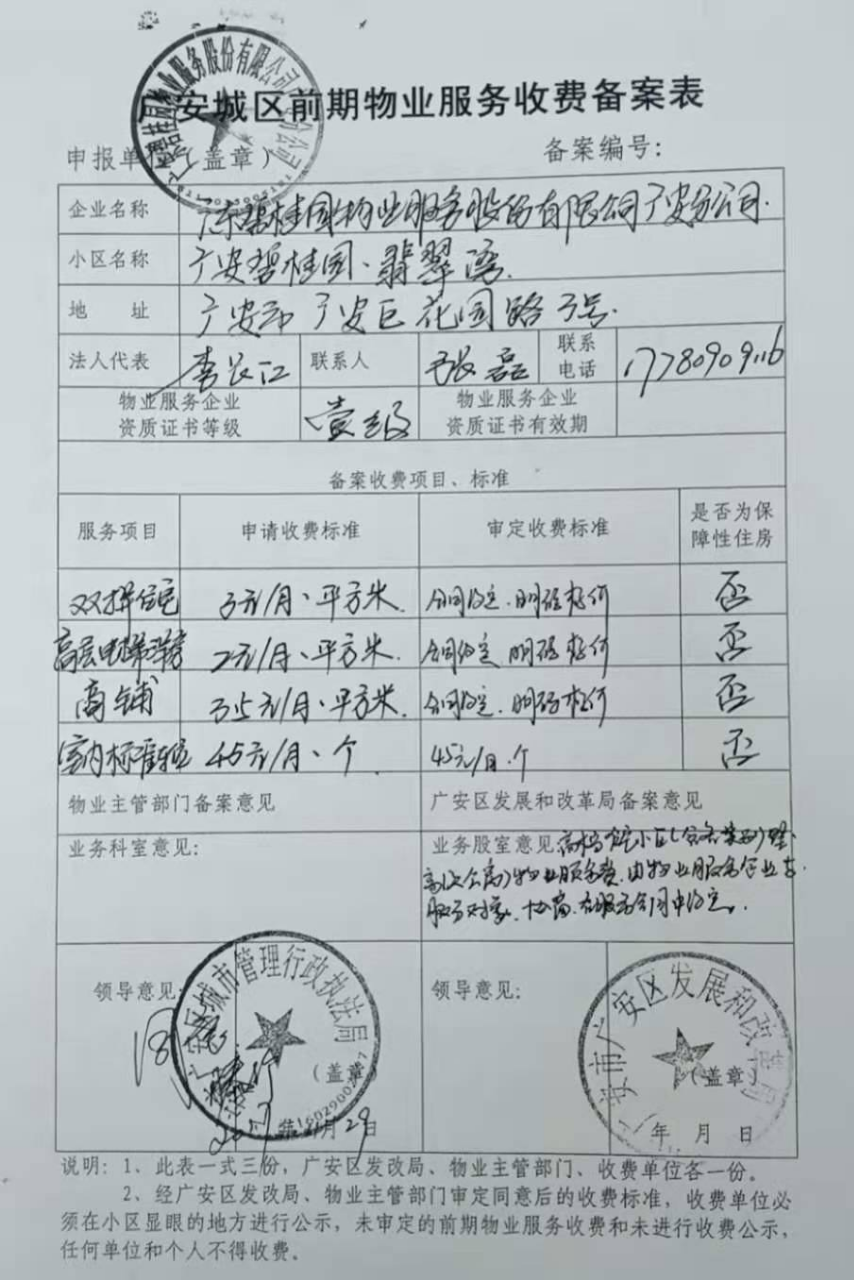 广安城区前期物业服务收费备案表
申报单位(盖章)
备案编号:
企业名称 广东碧桂园物业服务股份有限公司广安分公司.
小区名称 广安碧桂园、翡翠湾.
地 址 广安市广安区花园路
法人代表 李长江 联系人 张磊 联系电话
物业服务企业资质证书等级 壹级 物业服务企业资质证书有效期
备案收费项目、标准
服务项目 申请收费标准 审定收费标准 是否为保障性住房
双拼住宅 3元/月、平方米. 合同约定.明码标价 否
高层电梯洋房 2元/月、平方米. 合同约定 明码标价 否
商铺 3.5元/月、平方米. 合同约定.明码标价 否
室内标准车位 45元/月、个 45元/月.个 否
物业主管部门备案意见 广安区发展和改革局备案意见
业务科室意见:
业务股室意见
物业服务费.由物业服务企业与
服务对象.协商.在服务合同中约定。
领导意见:
领导意见:
城市管理行政执法局
广安市广安区发展和改革局
(盖章)
(盖章)
2017 年 月 29 日
年 月 日
说明:1、此表一式三份,广安区发改局、物业主管部门、收费单位各一份。
2、经广安区发改局、物业主管部门审定同意后的收费标准,收费单位必
须在小区显眼的地方进行公示,未审定的前期物业服务收费和未进行收费公示,
任何单位和个人不得收费。